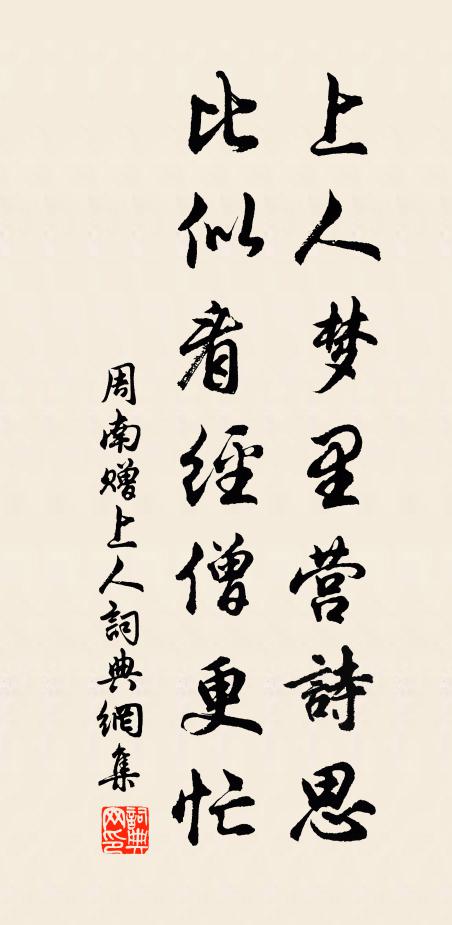 上人梦里营詩思
比似看經僧更忙
周南赠上人詞典網集
詞典网印